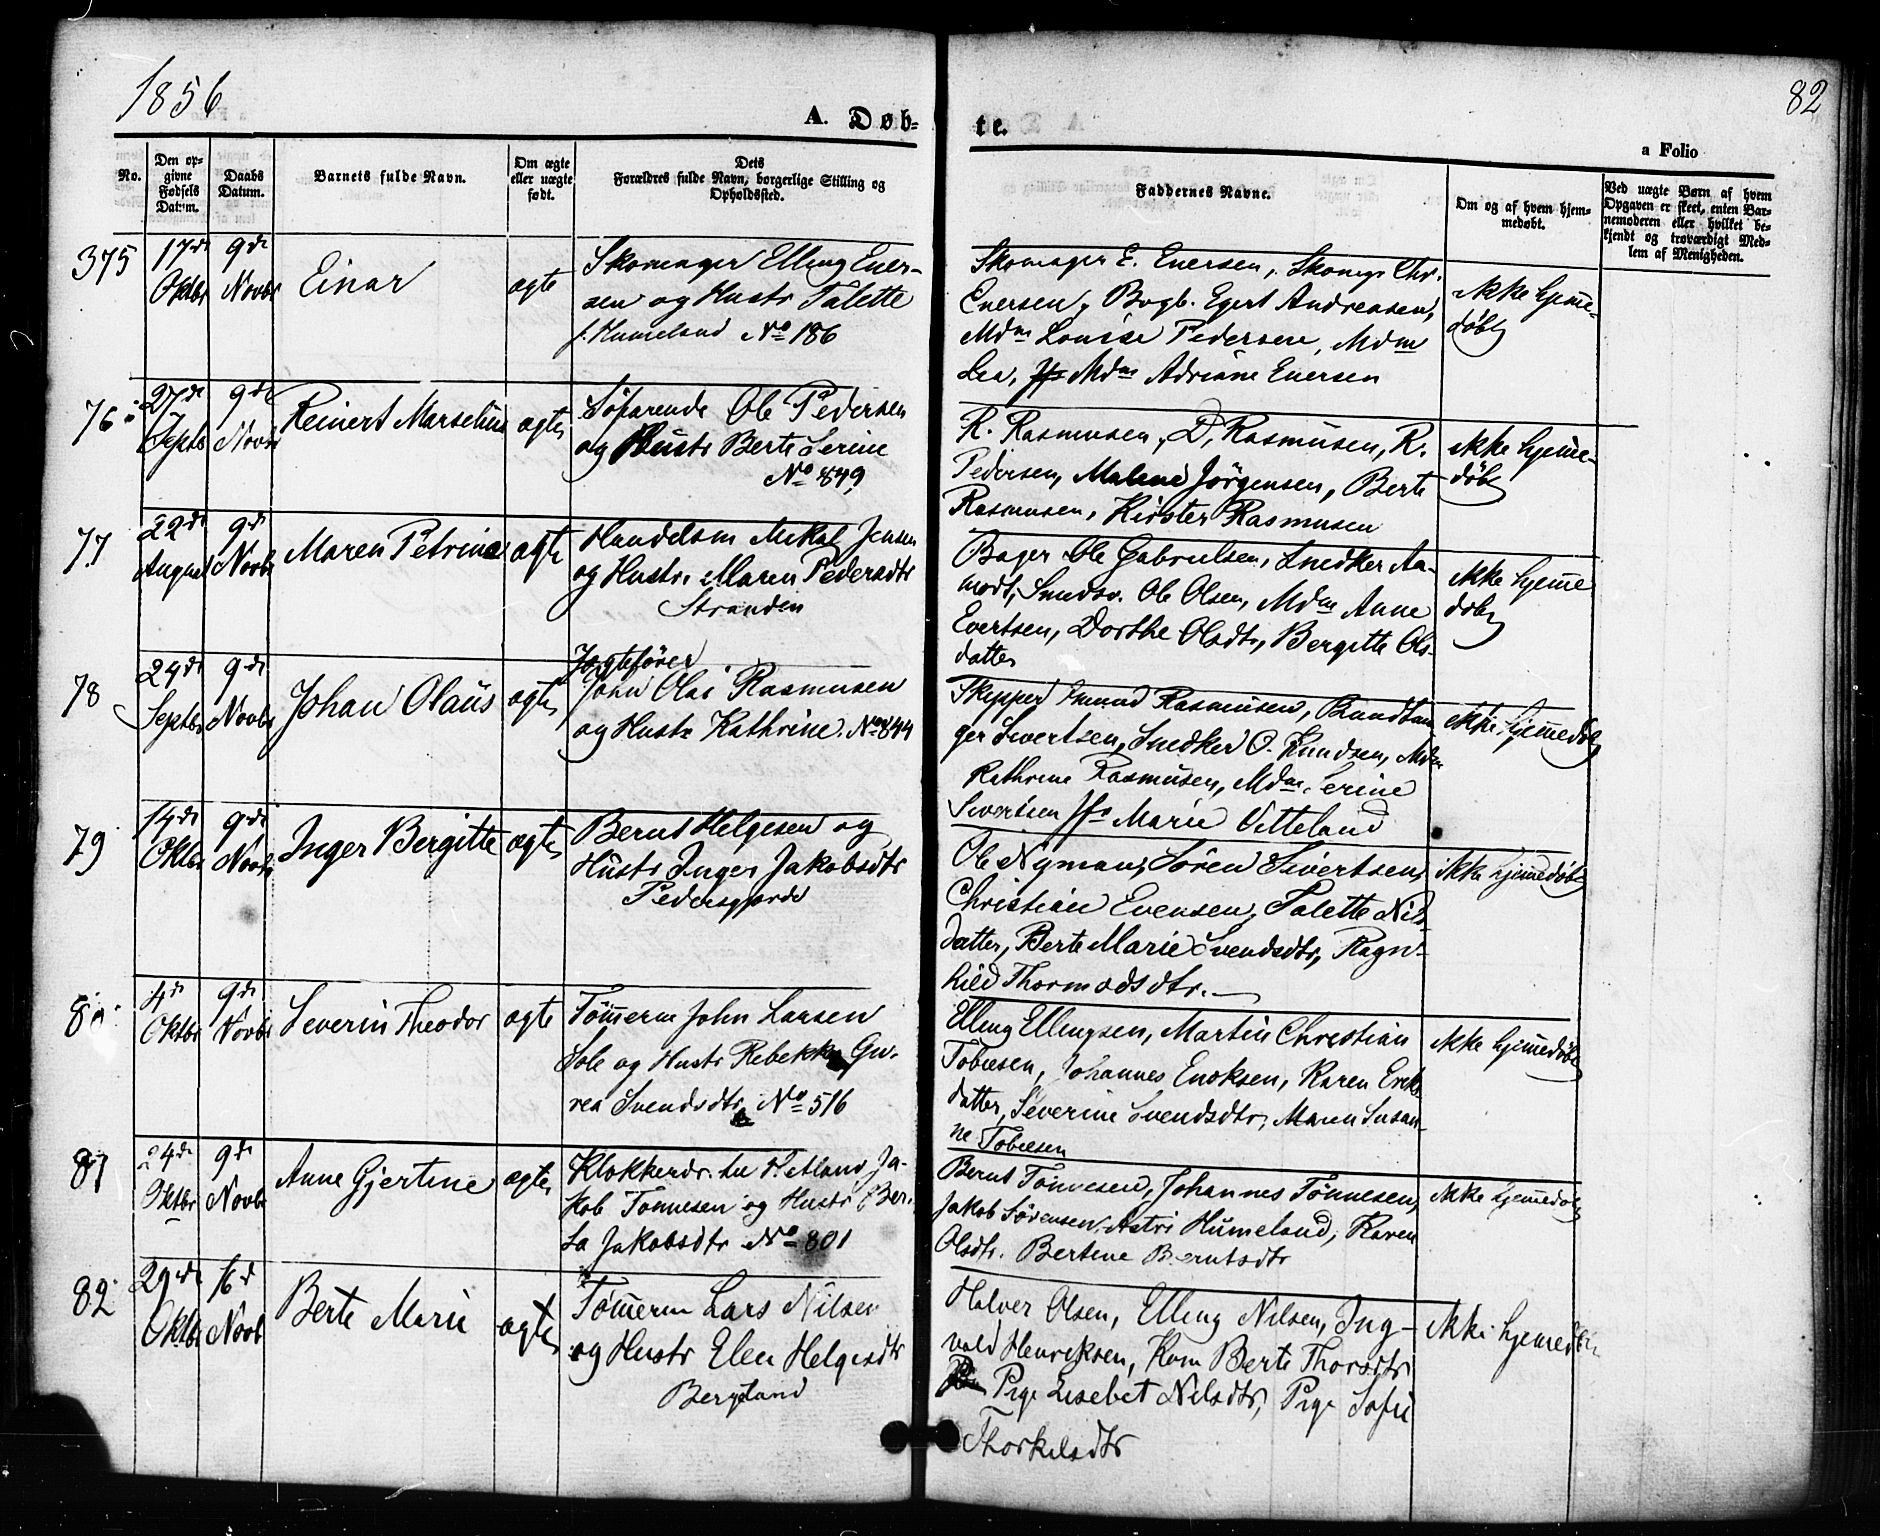 1856
82
A. Døb-
te.
a Folio
No.
Den op-
givne
Fødsels
Datum.
Daabs
Datum.
Barnets fulde Navn.
Om ægte
eller uægte
født.
Dets
Forældres fulde Navn, borgerlige Stilling og
Opholdssted.
Faddernes Navne.
Om og af hvem hjem-
medøbt.
Ved uægte Børn af hvem
Opgaven er skeet, enten Bar-
nemoderen eller hvilket be-
kjendt og troværdigt Med-
lem af Menigheden.
375
17de
Oktbr
9de
Novbr
Einar
ægte
Skomager Elling Ener-
sen og Hustr Talette
f. Humeland No 186
Skomager E. Enersen, Skomgr Chr.
Enersen, Bogb. Egert Andreasen,
Mdm Louise Pedersen, Mdm
Lea, Mdm Adriane Enersen
ikke hjeme-
døbt
76
27de
Septbr
9de
Novbr
Reinert Marselius
ægte
Søfarende Ole Pedersen
og Hustr Berte Serine
No 849
R. Rasmusen, D. Rasmusen, R.
Pedersen, Malene Jörgensen, Berte
Rasmusen, Kirster Rasmusen
ikke hjeme-
døbt
77
22de
August
9de
Novbr
Maren Petrine
ægte
Handelsm Mikal Jensen
og Hustr. Maren Pedersdtr
Stranden
Bager Ole Gabrielsen, Snedker Aa-
modt, Smedsv. Ole Olsen, Mdm Anne
Evertsen, Dorthe Olsdtr, Bergitte Ols-
datter
ikke hjeme
døbt
78
24de
Septbr
9de
Novbr
Johan Olaus
ægte
Jagtefører
John Olai Rasmusen
og Hustr Kathrine. No 844
Skipper Amund Rasmusen, Bundtma-
ger Sivertsen, Snedker O. Knudsen, Mdm
Kathrine Rasmusen, Mdm. Serine
Sivertsen Jfr Marie Vitteland
ikke hjemedøbt
79
14de
Oktbr
9de
Novbr
Inger Bergitte
ægte
Bernt Helgesen og
Hustr Inger Jakobsdtr
Pedersgjorde
Ole Nyman, Sören Sivertsen,
Christian Evensen, Talette Nils
datter, Berte Marie Svendsdtr, Ragn-
hild Thormodsdtr.
ikke hjemedøbt
80
4de
Oktbr
9de
Novbr
Severin Theodor
ægte
Tömerm John Larsen
Sole og Hustr Rebekka Gu-
rea Svendsdtr No 516
Elling Ellingsen, Martin Christian
Tobiesen, Johannes Enoksen, Karen Eriks
datter, Severine Svendsdtr, Maren Susan-
ne Tobiesen
ikke hjemedøbt
81
24de
Oktbr
9de
Novbr
Anne Gjertine
ægte
Klokkerdr. til Hetland Ja-
kob Tönnesen og Hustr Ber-
ta Jakobsdtr No 801
Bernt Tönnesen, Johannes Tönnesen,
Jakob Sörensen, Astri Humeland, Karen
Olsdtr. Bertine Berntsdtr
ikke hjemedøbt
82
29de
Oktbr
16d
Novb
Berte Marie
ægte
Tömerm Lars Nilsen
og Hustr Elen Helgesdtr
Bergeland
Halver Olsen, Elling Nilsen, Ing-
vald Henriksen, Kone Berte Thorsdtr
Pige Lisebet Nilsdtr, Pige Sofie
Thorkelsdtr
ikke hjemedøbt